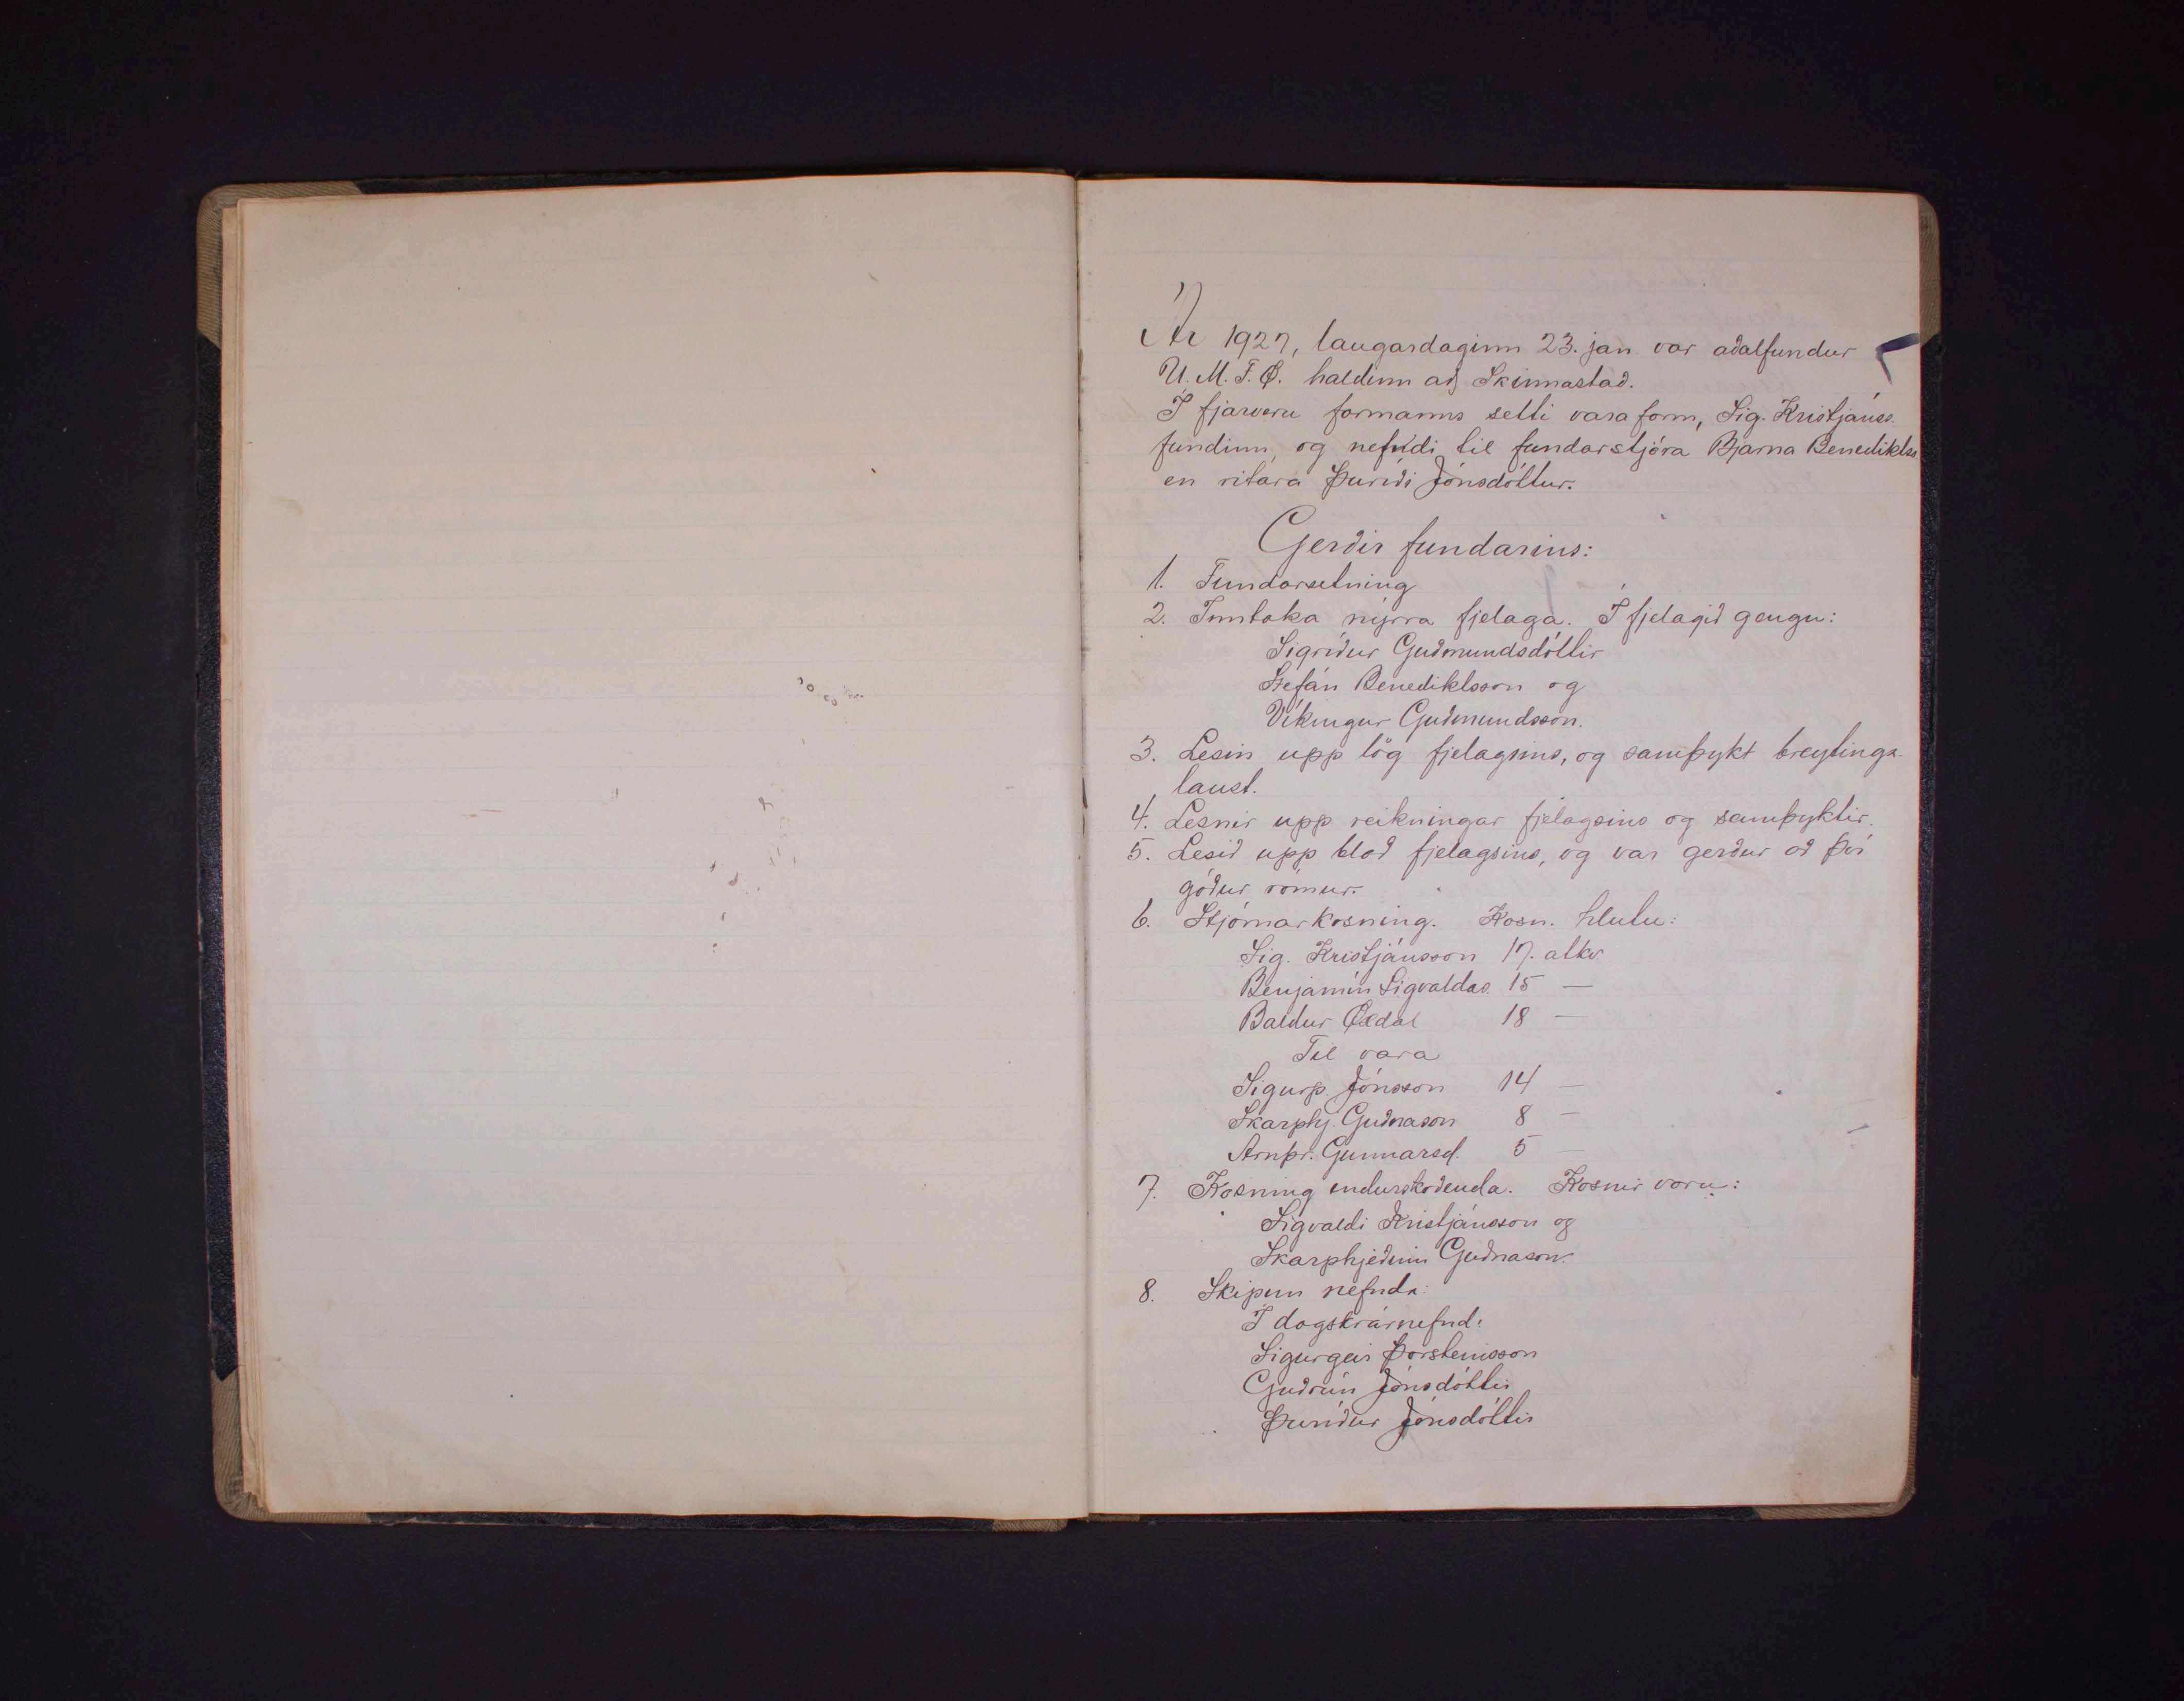 Ár 1927, laugardaginn 23. jan. var aðalfundur
U. M. F. Ö. haldinn að Skinnastað.
Í fjarveru formanns setti varaform, Sig. Kristjánss.
fundinn, og nefndi til fundarstjóra Bjarna Benediktss
en ritara Þuríði Jónsdóttur.
Gerðir fundarins:
1. Fundarsetning
2. Inntaka nýrra fjelaga. Í fjelagið gengu:
Sigríður Guðmundsdóttir
Stefán Benediktsson og
Víkingur Guðmundsson.
3. Lesin upp lög fjelagsins, og samþykt breytinga-
laust.
4. Lesnir upp reikningar fjelagsins og samþyktir.
5. Lesið upp blað fjelagsins, og var gerður að því
góður rómur.
6. Stjórnarkosning. Kosn. hlutu:
Sig. Kristjánsson 17. atkv
Benjamín Sigvaldas. 15 —
Baldur Öxdal 18 —
Til vara
Sigurþ. Jónsson 14 —
Skarphj. Guðnason 8 —
Arnþr. Gunnarsd. 5 —
7. Kosning endurskoðenda. Kosnir voru:
Sigvaldi Kristjánsson og
Skarphjeðinn Guðnason.
8. Skipun nefnda:
Í dagskrárnefnd:
Sigurgeir Þorsteinsson
Guðrún Jónsdóttir
Þuríður Jónsdóttir